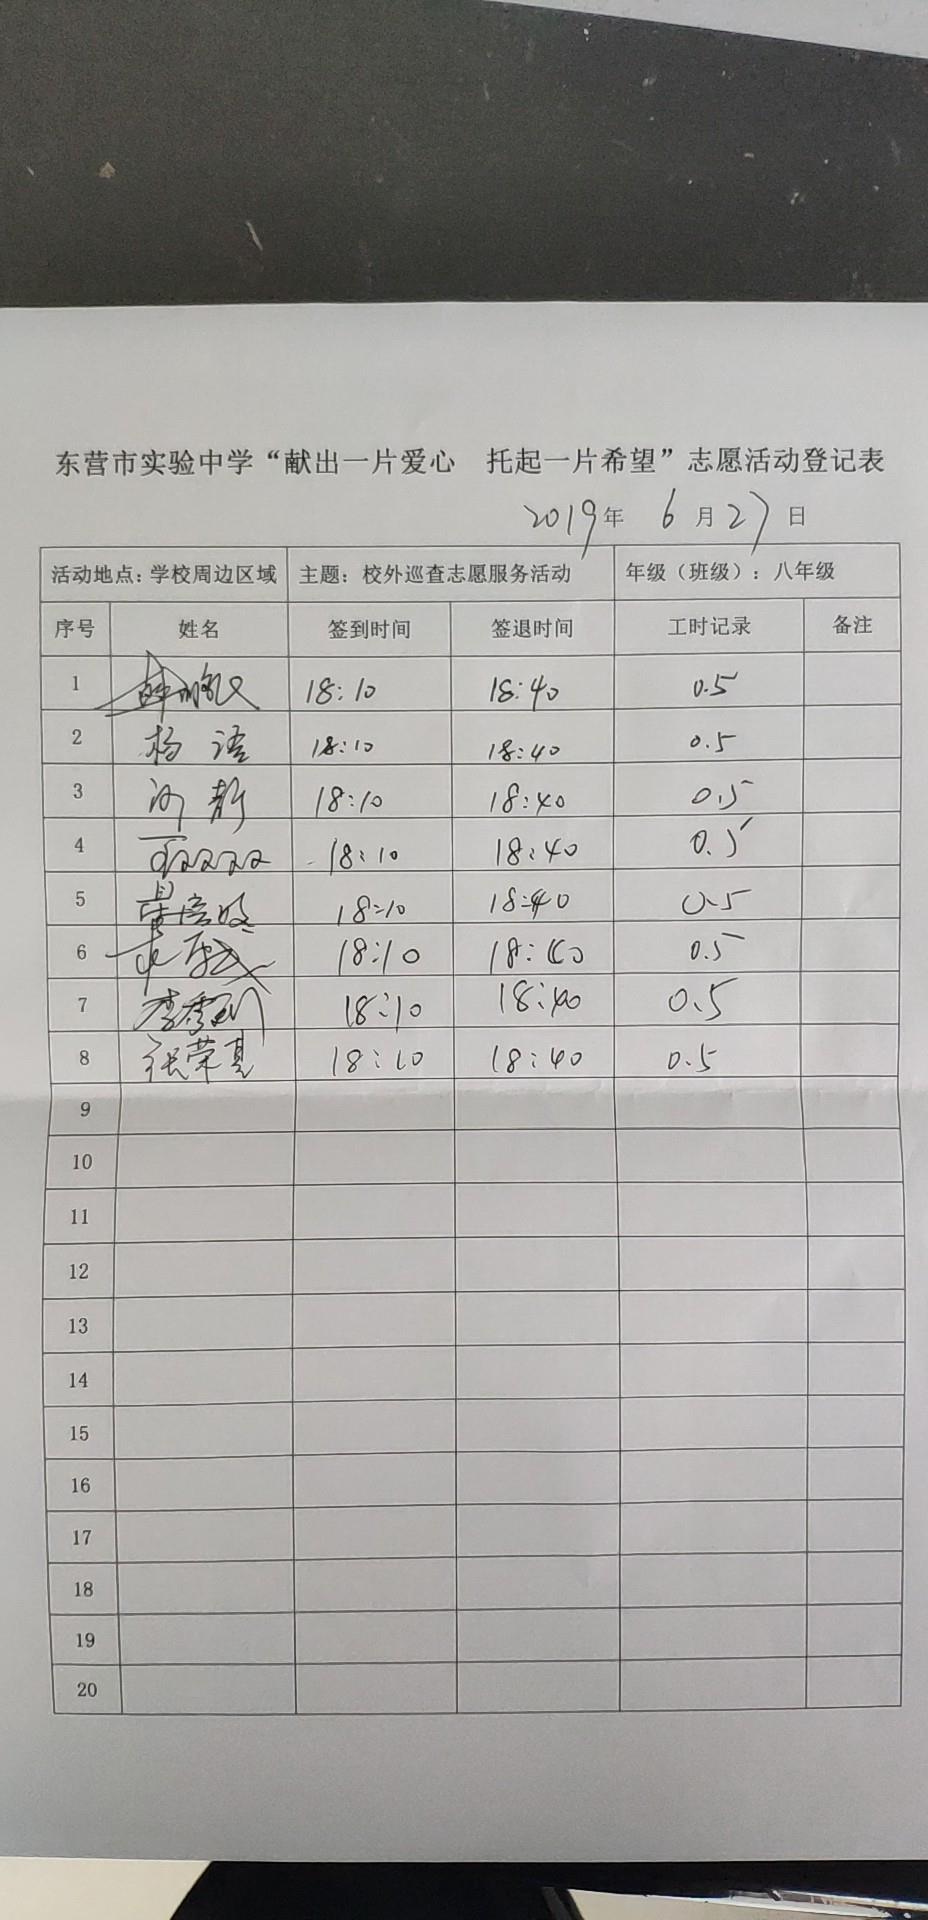 东营市实验中学“献出一片爱心 托起一片希望”志愿活动登记表
2019年 6月27日
活动地点：学校周边区域 主题：校外巡查志愿服务活动 年级（班级）：八年级
序号 姓名 签到时间 签退时间 工时记录 备注
1 18:10 18:40 0.5
2 杨 洁 18:10 18:40 0.5
3 静 18:10 18:40 0.5
4 18:10 18:40 0.5
5 18:10 18:40 0.5
6 18:10 18:40 0.5
7 李秀 18:10 18:40 0.5
8 张荣真 18:10 18:40 0.5
9
10
11
12
13
14
15
16
17
18
19
20